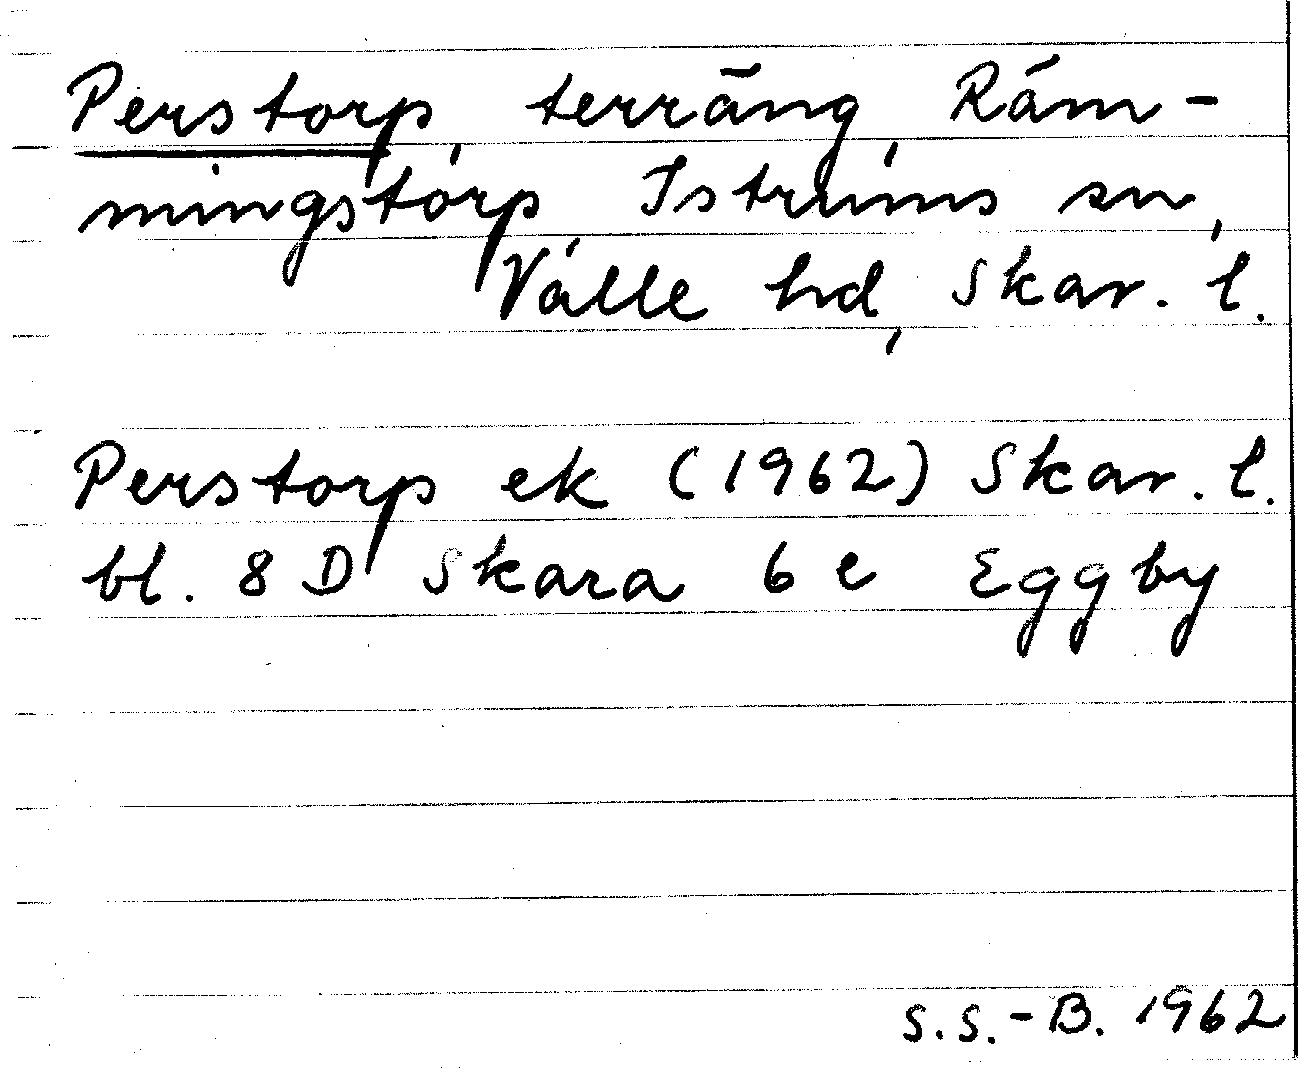 Perstorp, terräng, Räm-
mingstorp, Istrums sn,
Valle hd, Skar. l.
Perstorp ek (1962) Skar. l.
bl. 8 D Skara 6 e Eggby
S.S.-B. 1962